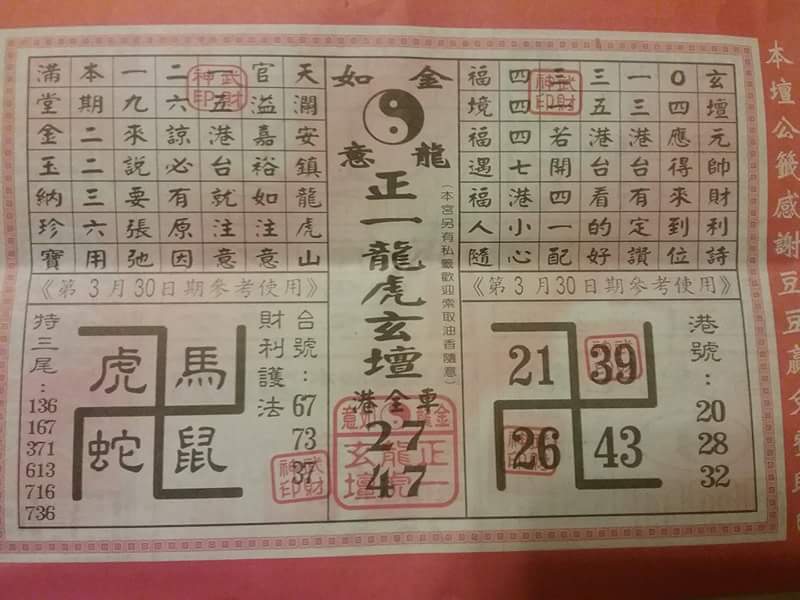 本壇公籤感謝豆豆贏
玄壇元帥財利詩
0四應得來到位
一三港台有定讚
三五港台看的好
若開四一配
四四四七港小心
福境福遇福人隨
《第3月30日期參考使用》
港號:
20
28
32
21 39
26 43
金龍
如意
正一龍虎玄壇
(本宮另有私籤歡迎索取油香隨意)
港全車
27
47
金龍
如意
正一
龍虎
玄壇
天瀾安鎮龍虎山
官溢嘉裕如注意
五港台就注意
二六諒必有原因
一九來說要張弛
本期二二三六用
滿堂金玉納珍寶
《第3月30日期參考使用》
台號:
67
73
37
財利護法
虎 馬
蛇 鼠
特三尾:
136
167
371
613
716
736
武財
神印
武財
神印
武財
神印